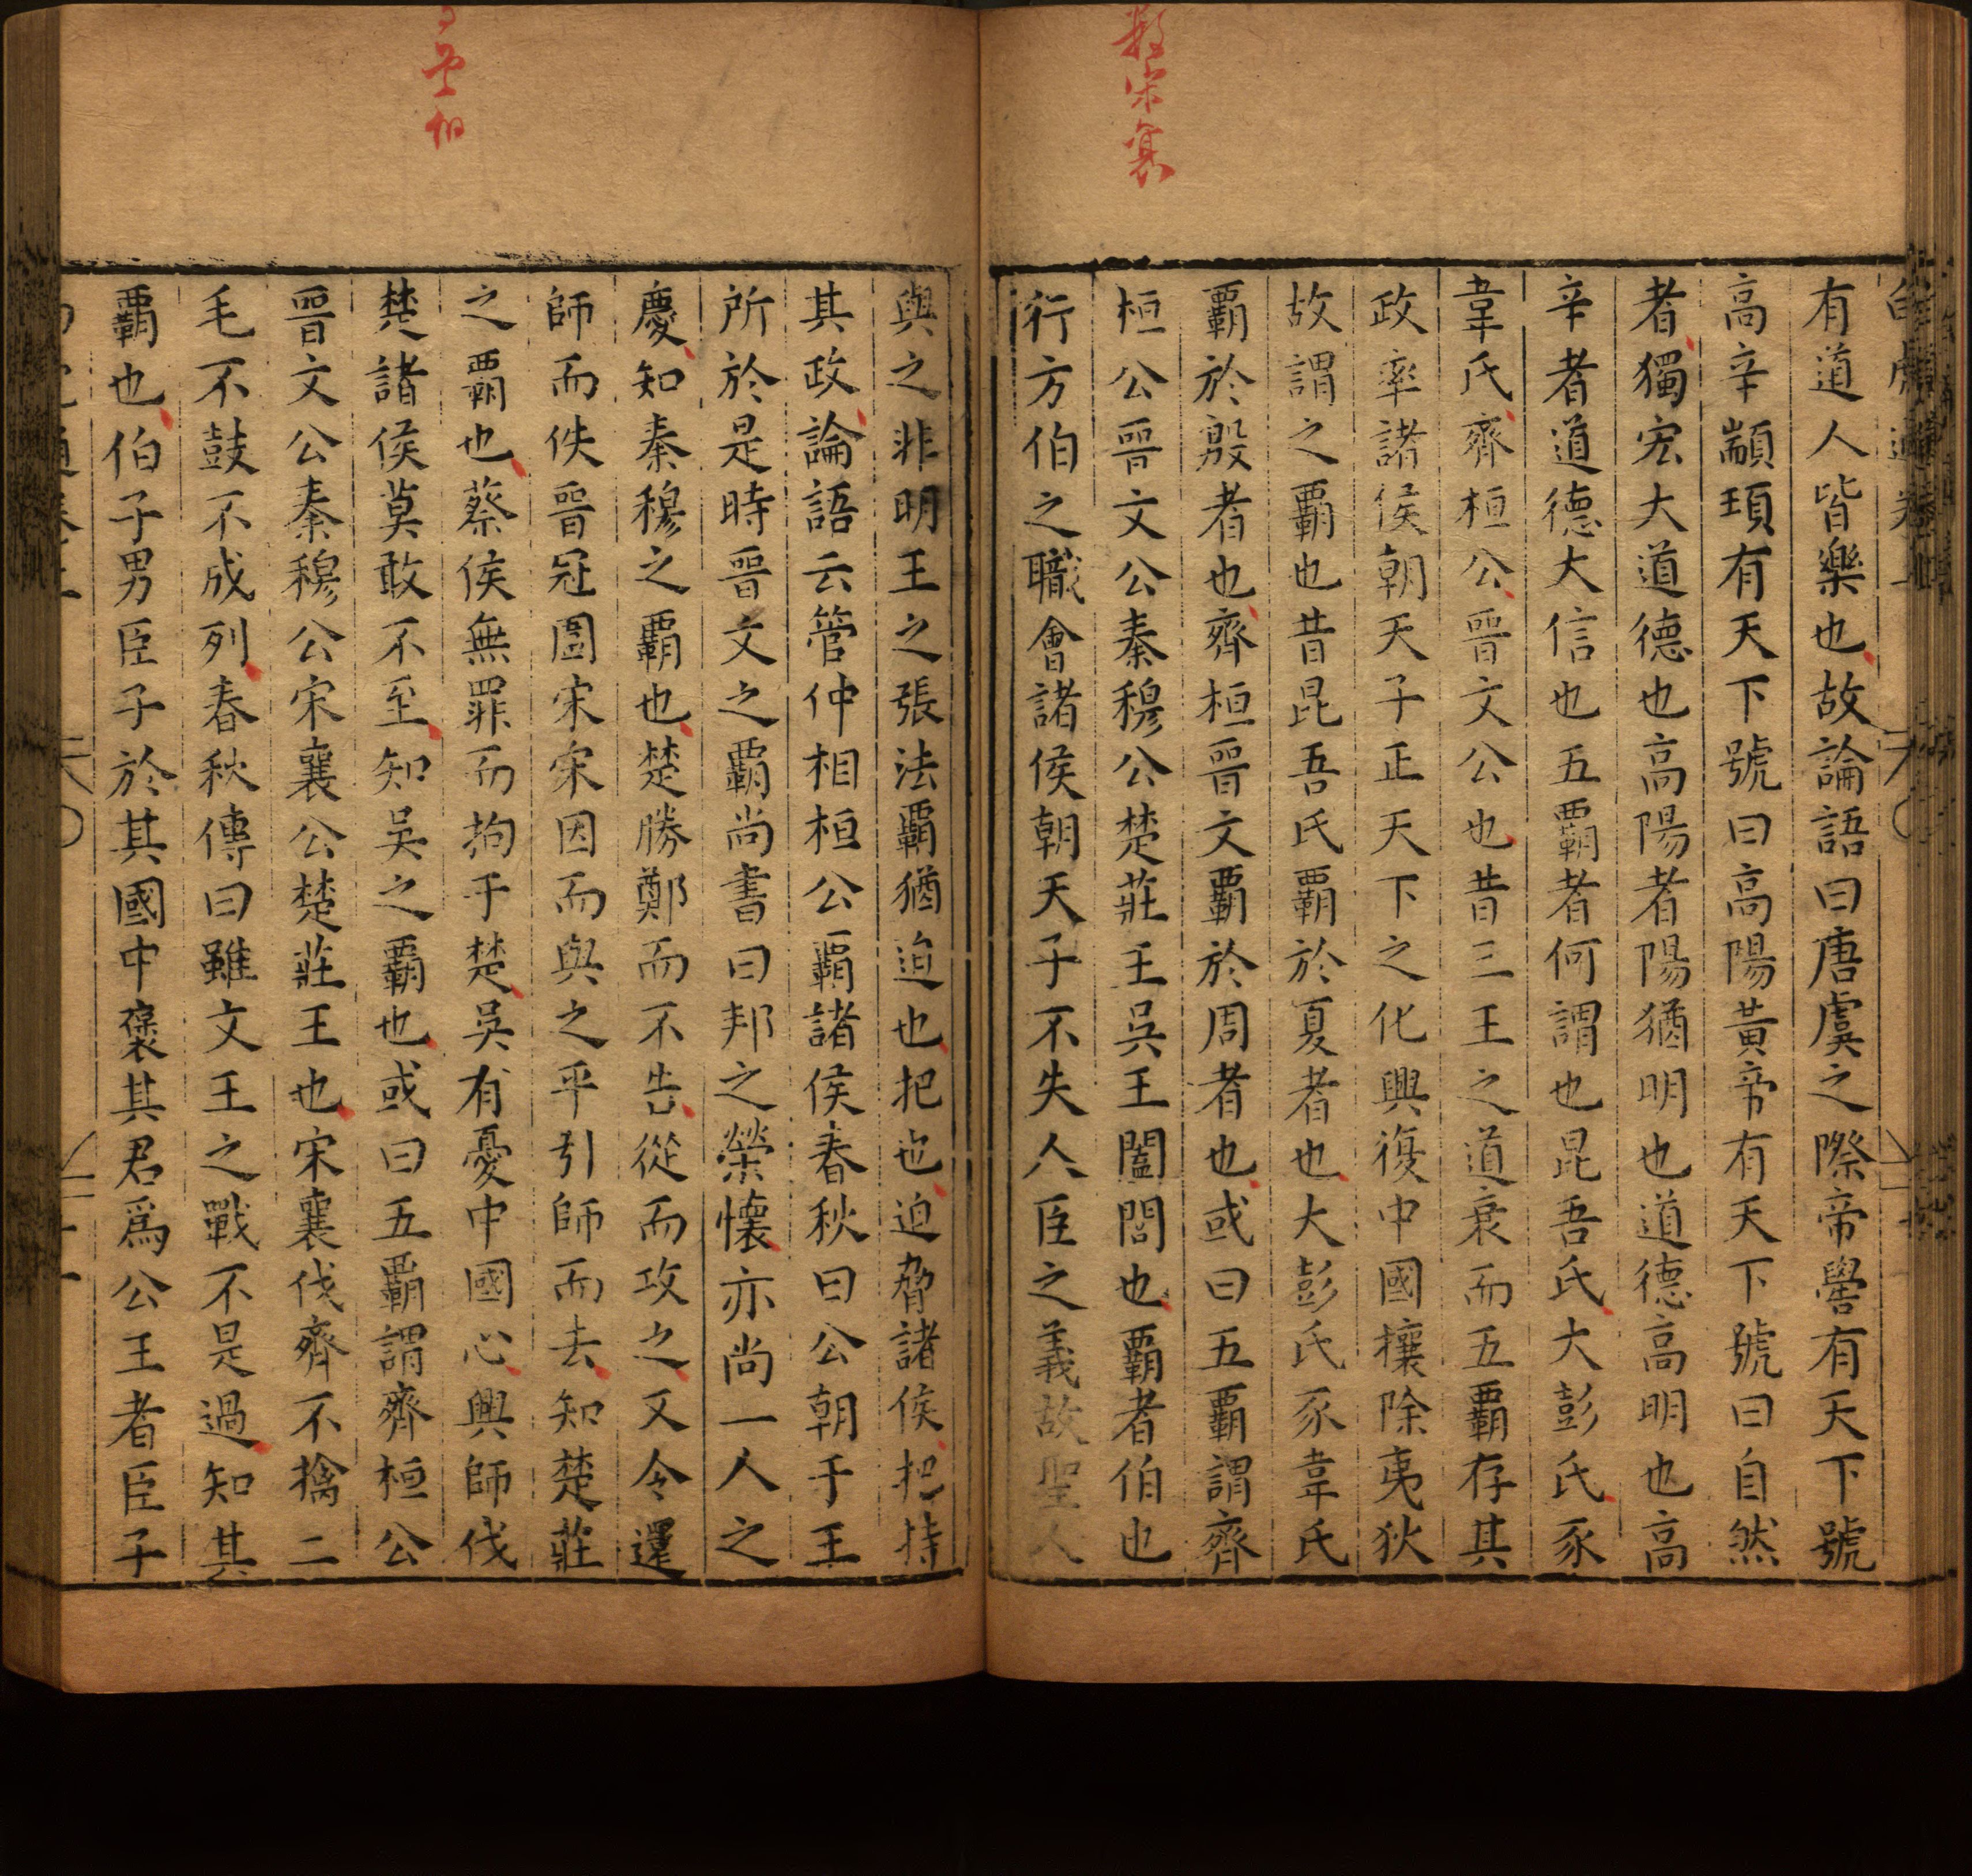 有道人皆樂也故論語曰唐虞之際帝嚳有天下號
高辛顓頊有天下號曰高陽黃帝有天下號曰自然
者獨宏大道德也高陽者陽猶明也道德高明也高
辛者道德大信也五霸者何謂也昆吾氏大彭氏豕
韋氏齊桓公晉文公也昔三王之道衰而五霸存其
政率諸侯朝天子正天下之化興復中國攘除夷狄
故謂之霸也昔昆吾氏霸於夏者也大彭氏豕韋氏
霸於殷者也齊桓晉文霸於周者也或曰五霸謂齊
桓公晉文公秦穆公楚莊王吳王闔閭也霸者伯也
行方伯之職會諸侯朝天子不失人臣之義故聖人
與之非明王之張法霸猶迫也把也迫脅諸侯把持
其政論語云管仲相桓公霸諸侯春秋曰公朝于王
所於是時晉文之霸尚書曰邦之榮懷亦尚一人之
慶知秦穆之霸也楚勝鄭而不告從而攻之又令還
師而佚晉冦圍宋宋因而與之平引師而去知楚莊
之霸也蔡侯無罪而拘于楚吳有憂中國心興師伐
楚諸侯莫敢不至知吳之霸也或曰五霸謂齊桓公
晉文公秦穆公宋襄公楚莊王也宋襄伐齊不擒二
毛不鼓不成列春秋傳曰雖文王之戰不是過知其
霸也伯子男臣子於其國中褒其君爲公王者臣子